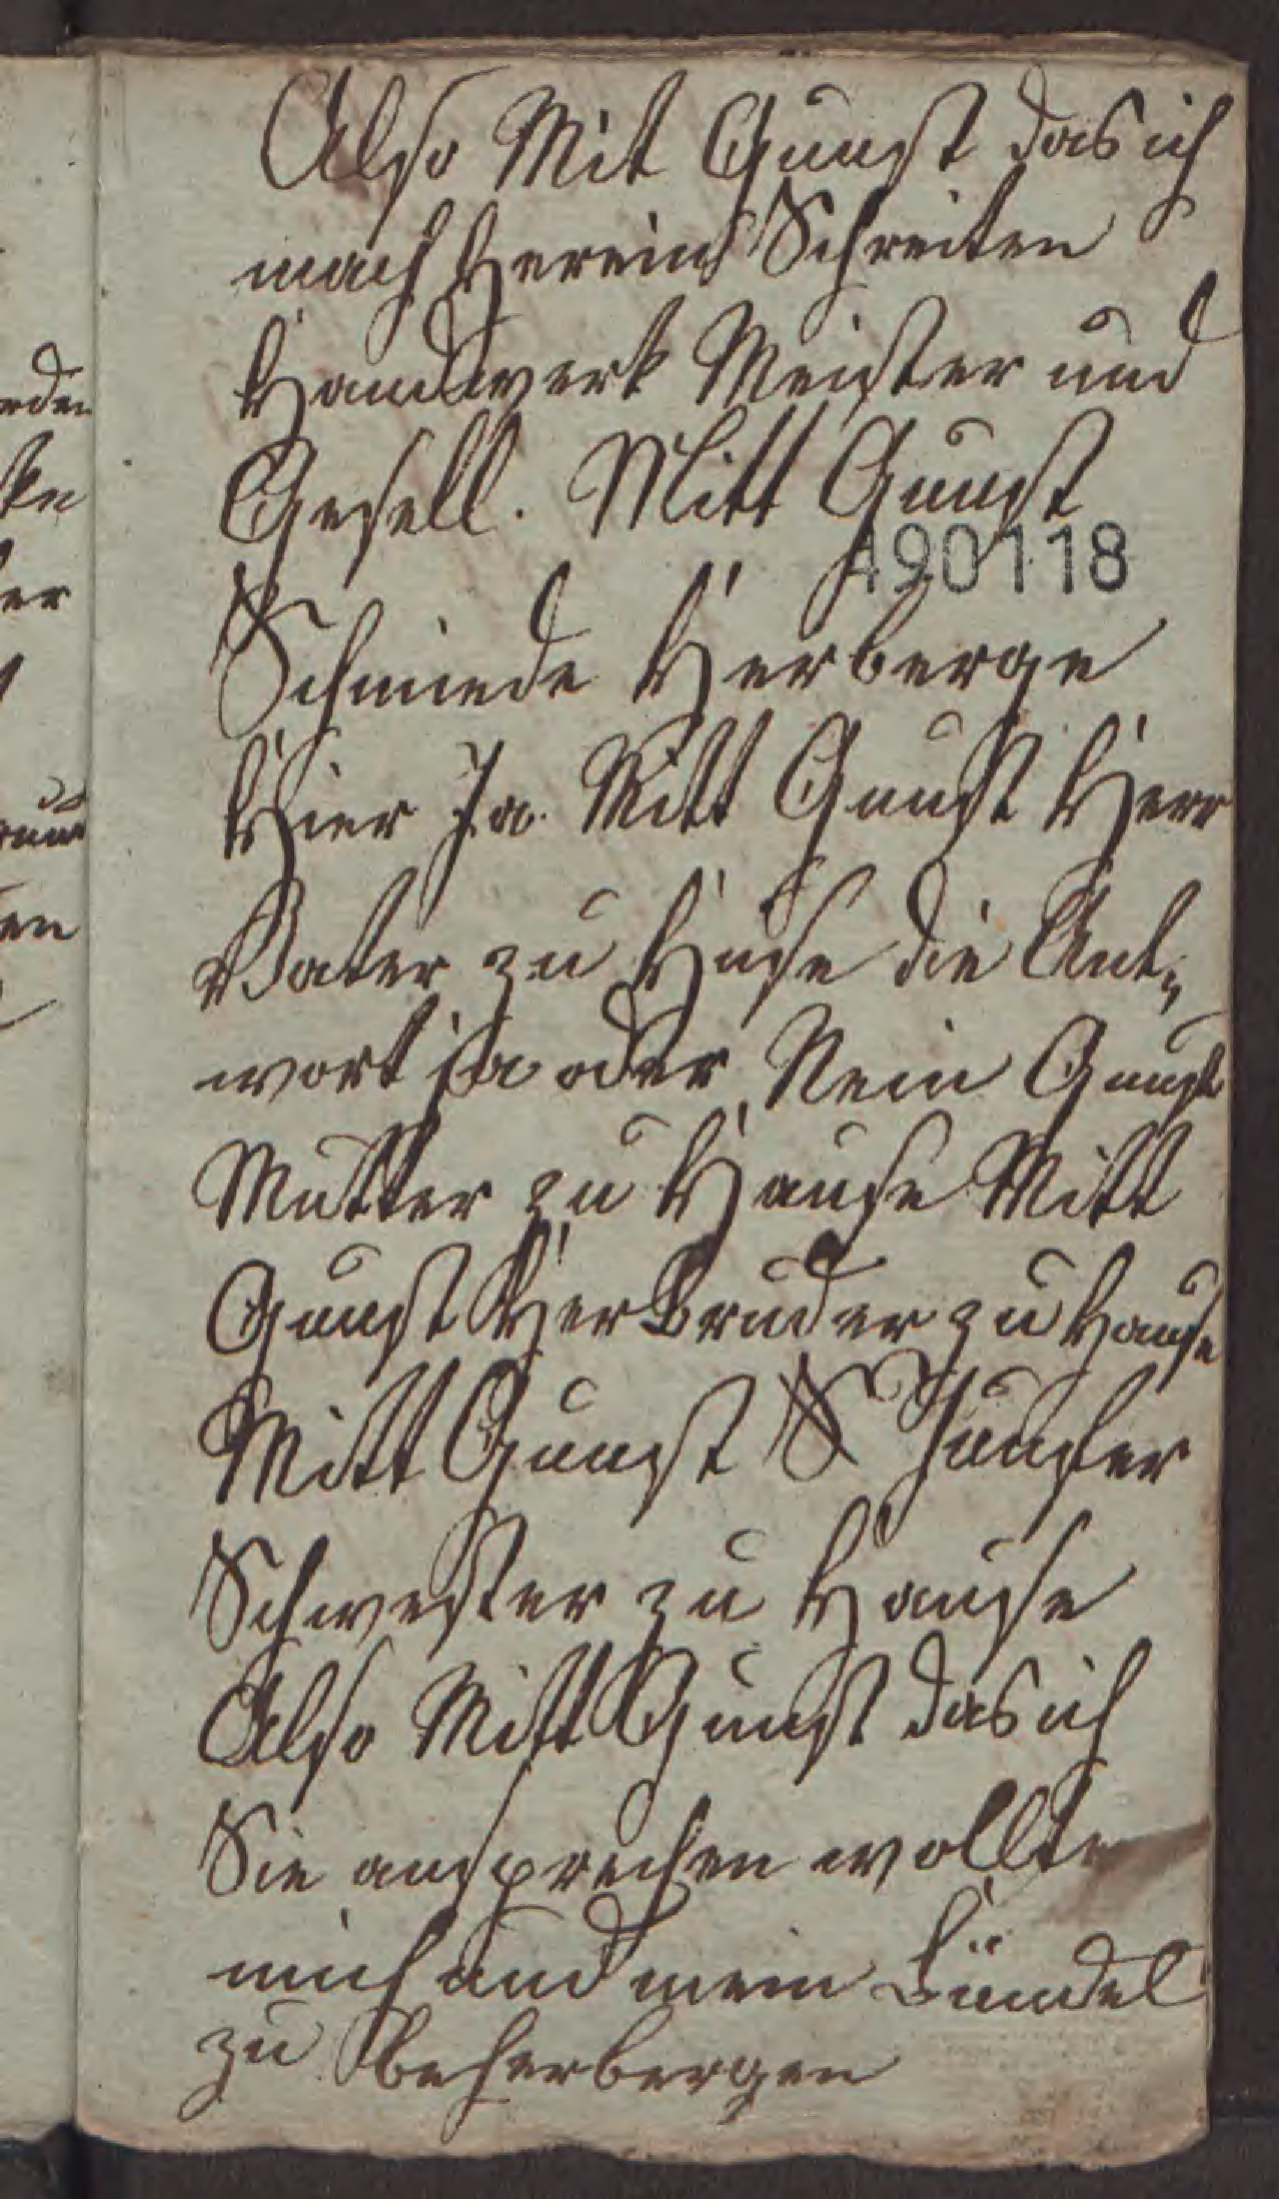 Also Mit Gunst das ich
mach Herein Schreiten
Handwerk Meister und
Gesell. Mitt Gunst
490118
Schmiede Herberge
Hier Ja. Mitt Gunst Herr
Vater zu Huse die Ant„
wort ja oder Nein Gunst
Mutter zu Hause Mitt
Gunst Her Bruder zu Hause
Mitt Gunst Junfer
Schwester zu Hause
Also Mitt Gunst das ich
Sie ansprechen wollte
mich und mein Bündel
zu beherbergen